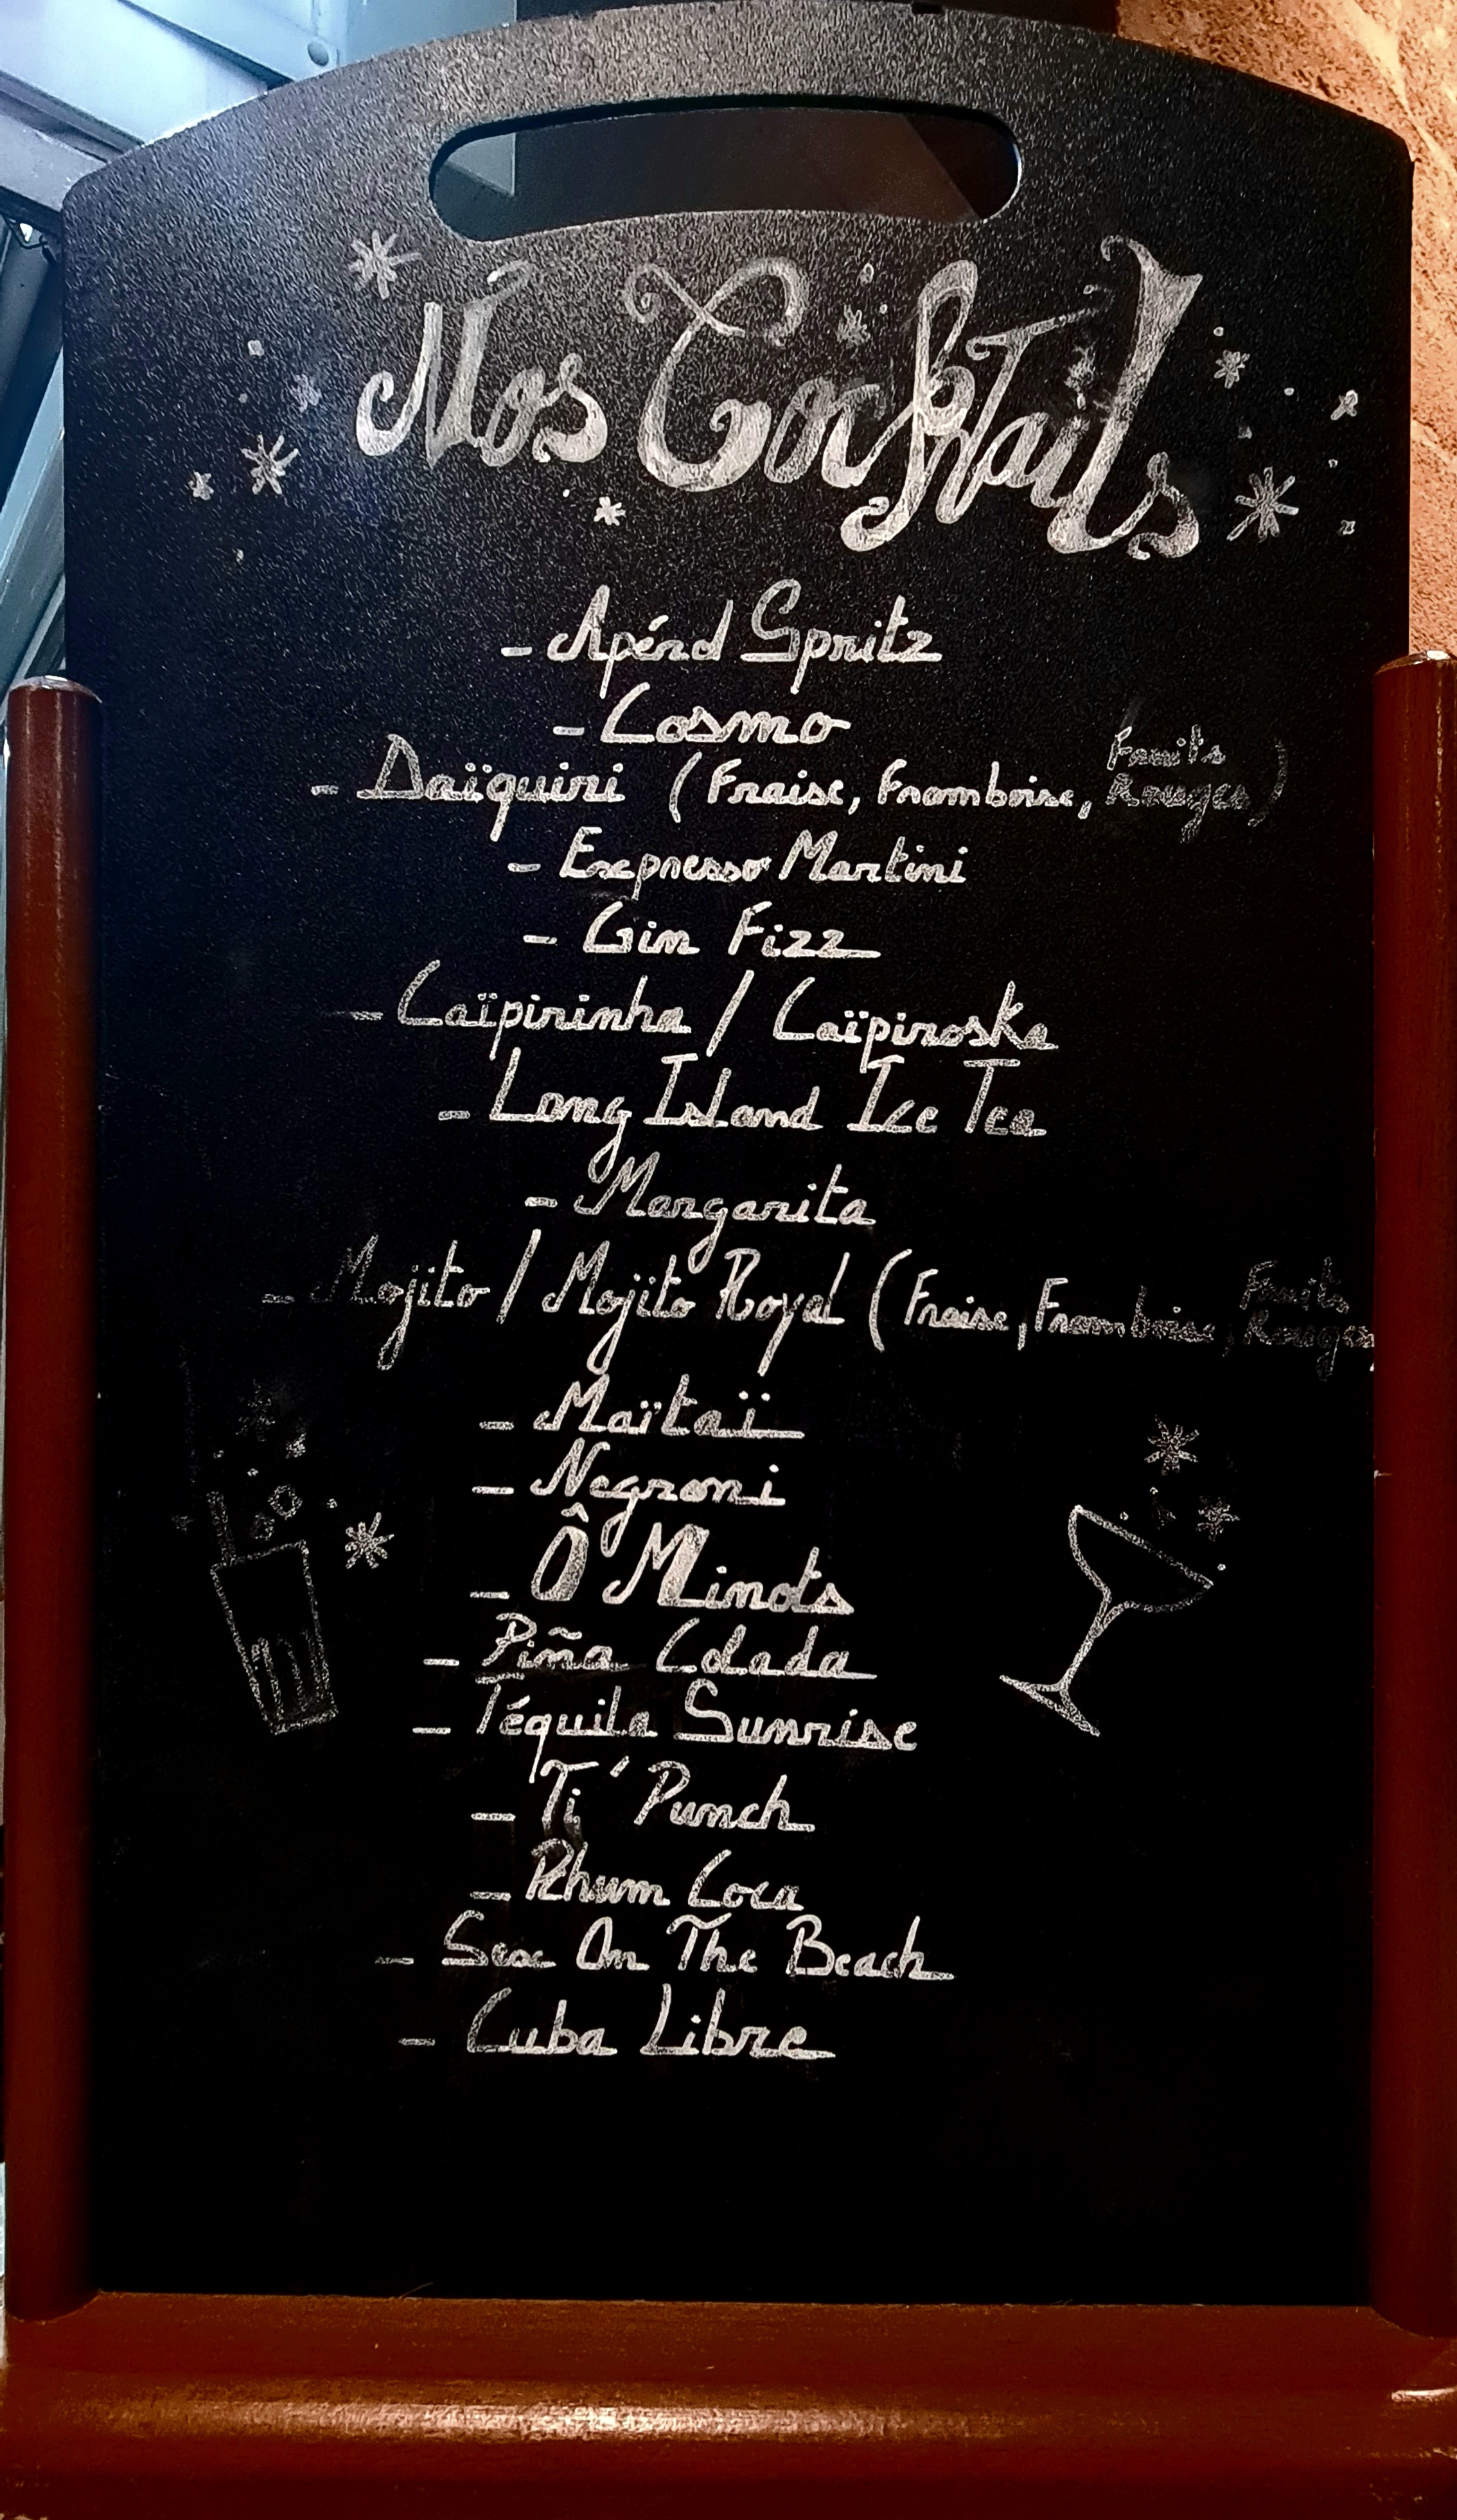 Nos Cocktails
- Apérol Spritz
- Cosmo
- Daïquiri (Fraise, Framboise, Fruits Rouges)
- Expresso Martini
- Gin Fizz
- Caïpirinha / Caïpiroska
- Long Island Ice Tea
- Margarita
- Mojito / Mojito Royal (Fraise, Framboise, Fruits Rouges)
- Maïtaï
- Negroni
- Ô Minots
- Piña Colada
- Téquila Sunrise
- Ti' Punch
- Rhum Coca
- Sex On The Beach
- Cuba Libre